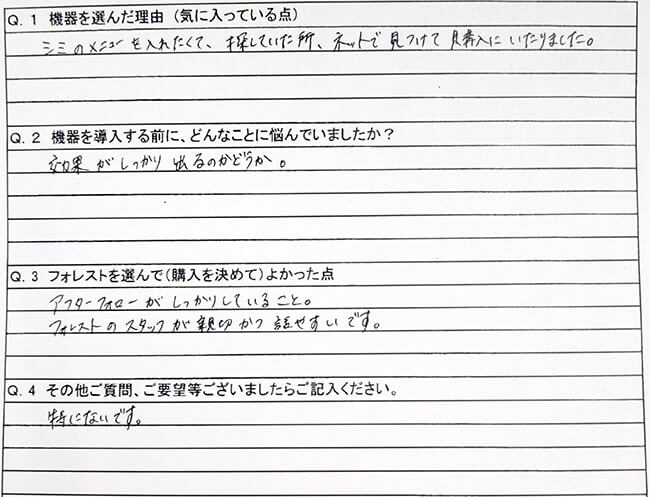 Q.1 機器を選んだ理由(気に入っている点)
シミのメニューを入れたくて、探していた所、ネットで見つけて購入にいたりました。
Q.2 機器を導入する前に、どんなことに悩んでいましたか?
効果がしっかり出るのかどうか。
Q.3 フォレストを選んで(購入を決めて)よかった点
アフターフォローがしっかりしていること。
フォレストのスタッフが親切かつ話せすいです。
Q.4 その他ご質問、ご要望等ございましたらご記入ください。
特にないです。